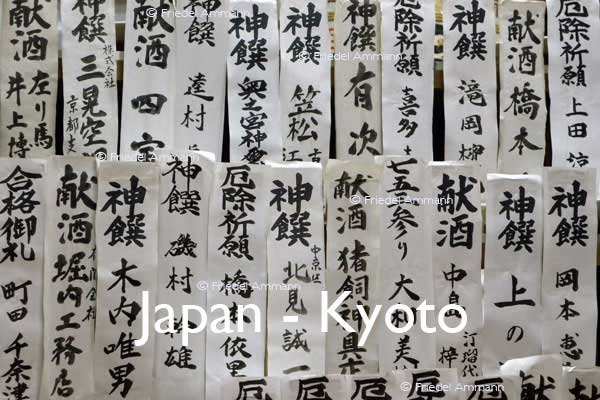 献酒 左り馬 井上博
神饌 株式会社 三晃空 京都支
献酒 四宮
神饌 達村
神饌 奥土宮神
神饌 笠松
神饌 有次
厄除祈願 喜多
神饌 滝岡
献酒 橋本
厄除祈願 上田
合格御札 町田千奈津
献酒 堀内工務店
神饌 木内唯男
神饌 磯村 雄
厄除祈願 橋本依里
神饌 中京区 北見誠一
献酒 猪飼 真正
七五参り 大村美
献酒 中良
神饌 上の
神饌 岡本恵
厄 厄 厄 厄 厄 献 献
Japan - Kyoto
© Friedel Ammann
© Friedel Ammann
© Friedel Ammann
© Friedel Ammann
© Friedel Ammann
© Friedel Ammann
© Friedel Ammann